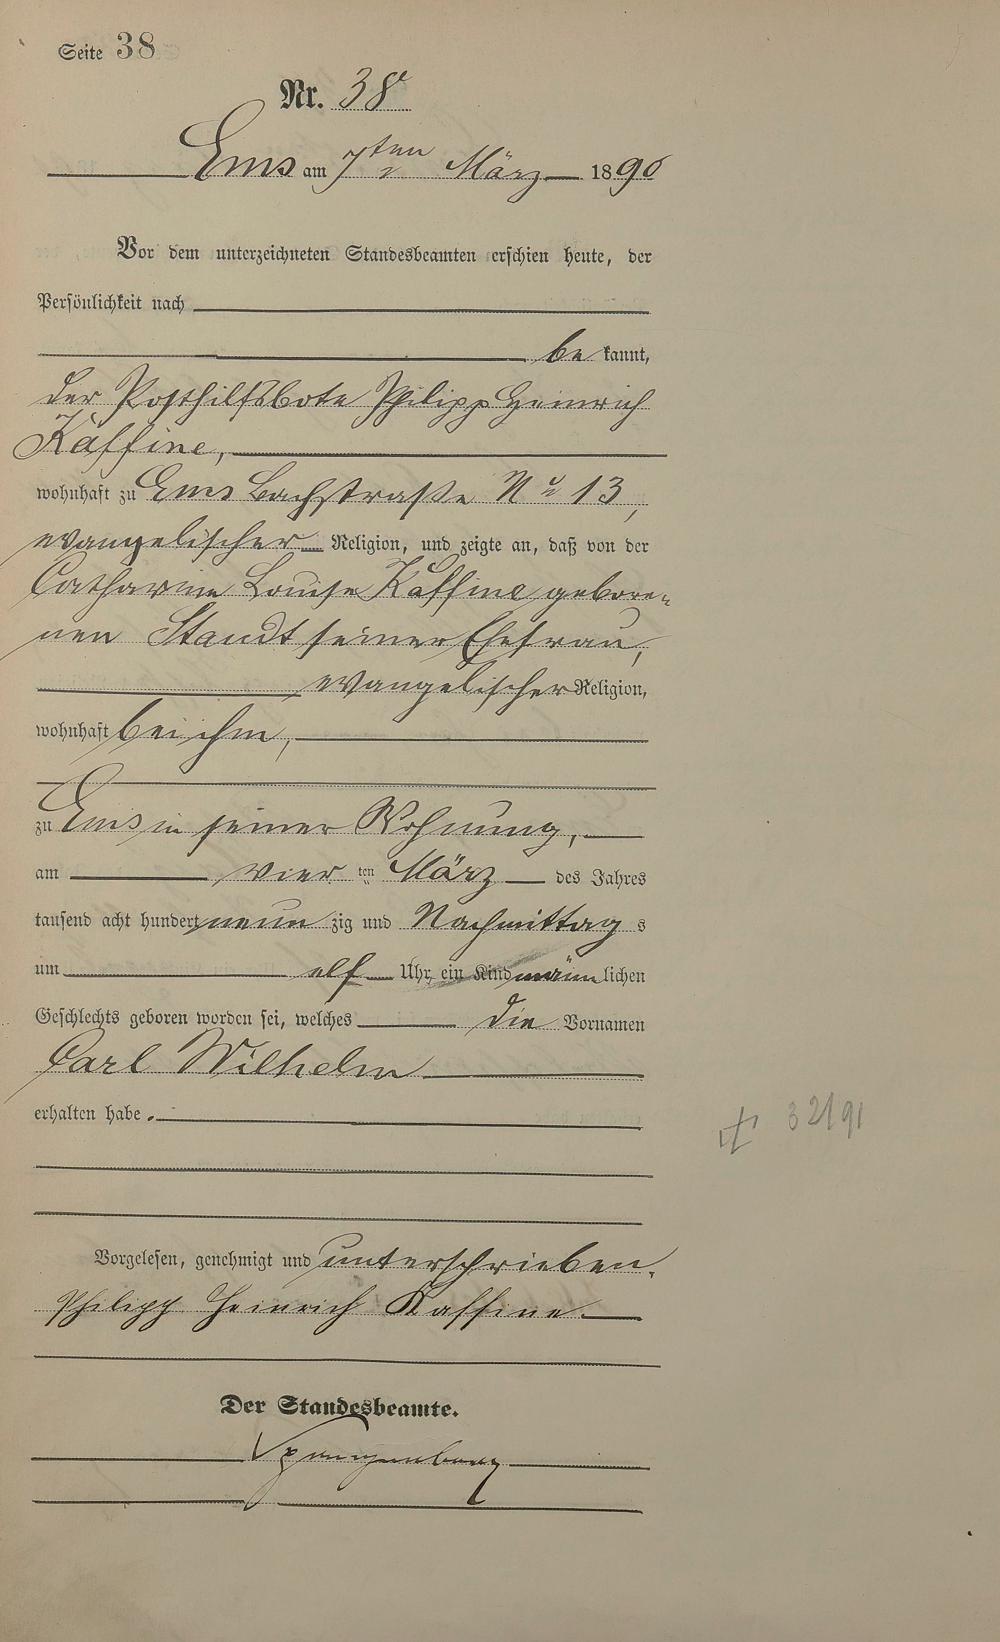 Seite 38
Nr. 38
Ems am 7ten März 1890
Vor dem unterzeichneten Standesbeamten erschien heute, der
Persönlichkeit nach
bekannt,
der Posthilfsbote Philipp Heinrich
Kaffine,
wohnhaft zu Ems Bachstraße No 13,
evangelischer Religion, und zeigte an, daß von der
Catharine Louise Kaffine gebore-
nen Staudt seiner Ehefrau,
evangelischer Religion,
wohnhaft bei ihm,
zu Ems in seiner Wohnung,
am vierten März des Jahres
tausend acht hundert neunzig und Nachmittags
um elf Uhr ein Kind männlichen
Geschlechts geboren worden sei, welches die Vornamen
Carl Wilhelm
erhalten habe.
† 32/91
Vorgelesen, genehmigt und unterschrieben.
Philipp Heinrich Kaffine
Der Standesbeamte.
Spangenberg